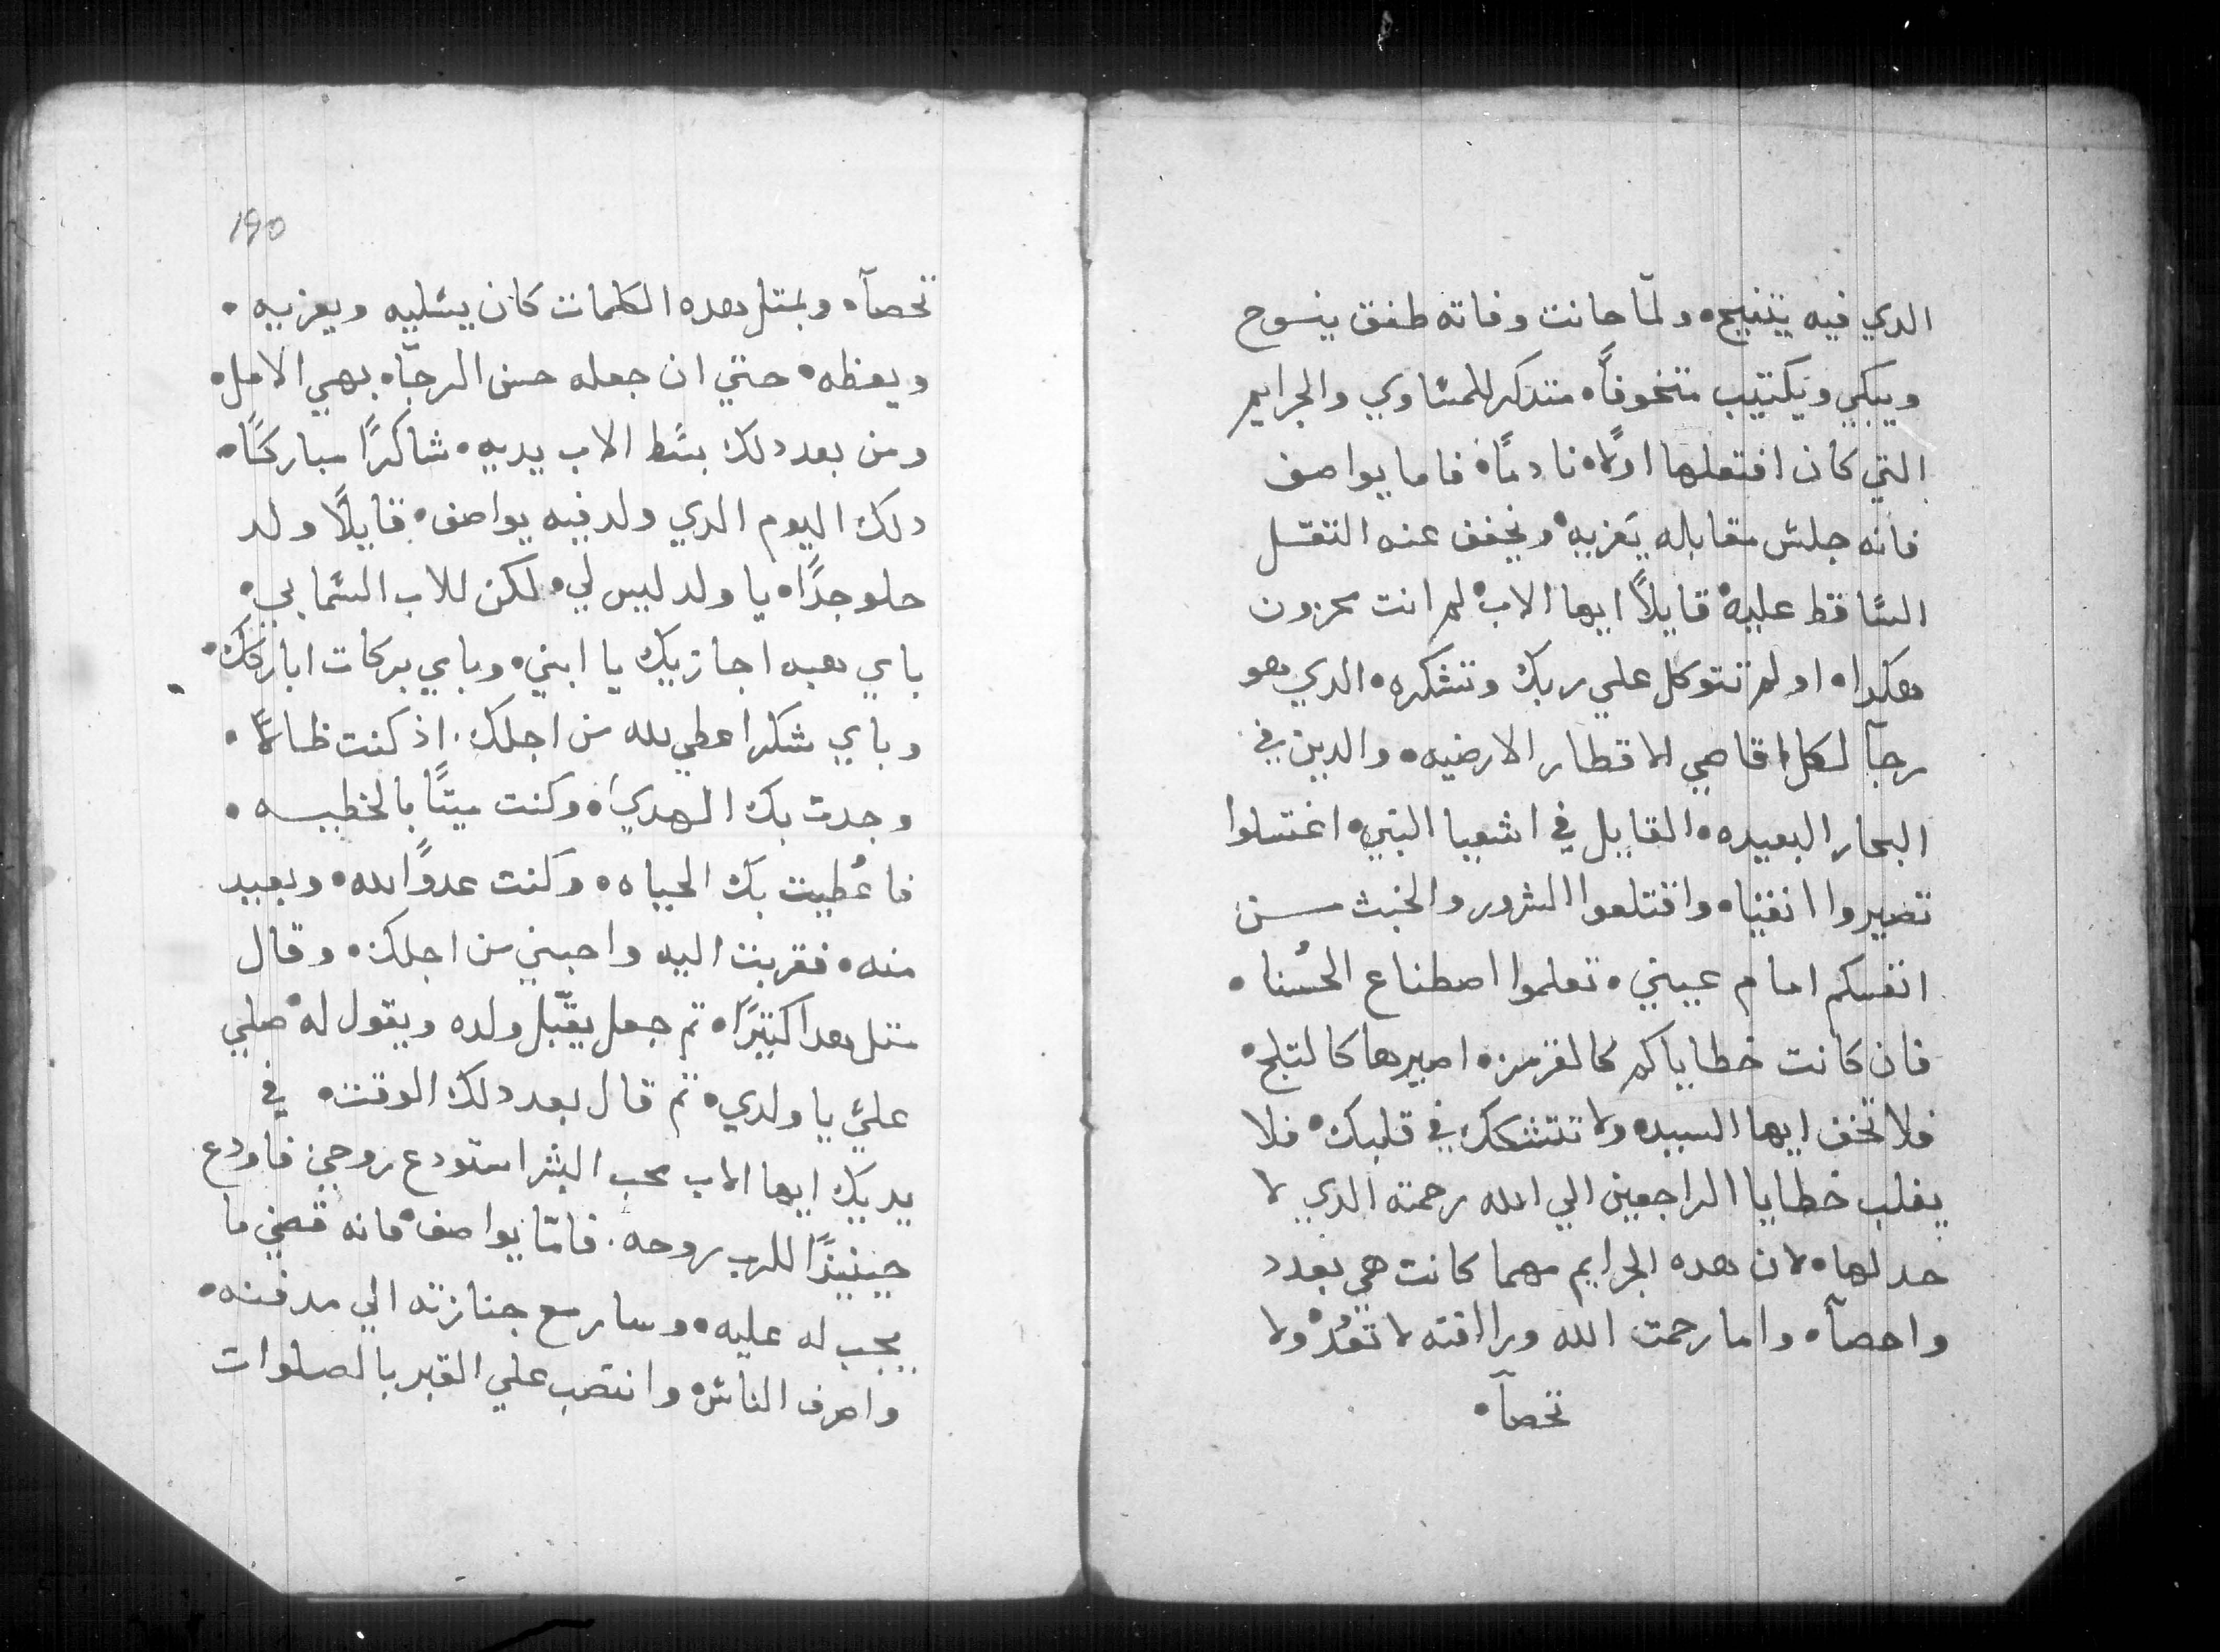 الدي فيه يتنيح، ولمّا حانت وفاته طفق ينوح
ويبكي ويكتيب متخوفاً، متدكر للمساوي والجرايم
التي كان افتعلها اولاً، نادمًا، فاما يواصف
فانه جلس مقابله يَعزيه، ويخفف عنه التقل
الساقط عليه، قايلاً ايها الاب، لم انت محزون
هكدا، او لم تتوكل علي ربك وتشكره، الدي هو
رجآ لكل اقاصي الاقطار الارضيه، والدين في
البحار البعيده، القايل في اشعيا النبي، اغتسلوا
تصيروا انقيا، واقتلعوا الشرور والخبث من
انفسكم امام عيني، تعلموا اصطناع الحُسنا،
فان كانت خطاياكم كالقرمز، اصيرها كالتلج،
فلا تخف ايها السيد، ولا تتشكك في قلبك، فلا
يغلب خطايا الراجعين الي الله رحمته الدي لا
حد لها، لان هده الجرايم مهما كانت هي بعدد
واحصآ، واما رحمت الله ورأفته لا تعُد، ولا
تحصآ،
190
تحصآ، وبمتل هده الكلمات كان يسليه ويعزيه،
ويعظه، حتي ان جعله حسن الرجآ، بهي الامل،
ومن بعد دلك بسًط الاب يديه، شاكرًا مباركًا،
دلك اليوم الدي ولد فيه يواصف، قايلًا ولد
حلو جدًا، يا ولد ليس لي، لكن للاب السمايي،
باي هبه اجازيك يا ابني، وباي بركات اباركك،
وباي شكرا عطي لله من اجلك. اذ كنت ظالاً،
وجدت بك الهدي، وكنت ميتًا بالخطيه،
فاعُطيت بك الحياه، وكنت عدوًا لله، وبعيد
منه، فقربت اليه واحبني من اجلك، وقال
متل هدا كتيرًا، تم جعل يقبّل ولده ويقول له، صلي
عليّ يا ولدي، تم قال بعد دلك الوقت، في
يديك ايها الاب محب البشر استودع روحي فاودع
حينيذًا للرب روحه. فامّا يواصف، فانه قضي ما
يجب له عليه، وسار مع جنازته الي مدفنه،
واصرف الناس، وانتصب علي القبر بالصلوات